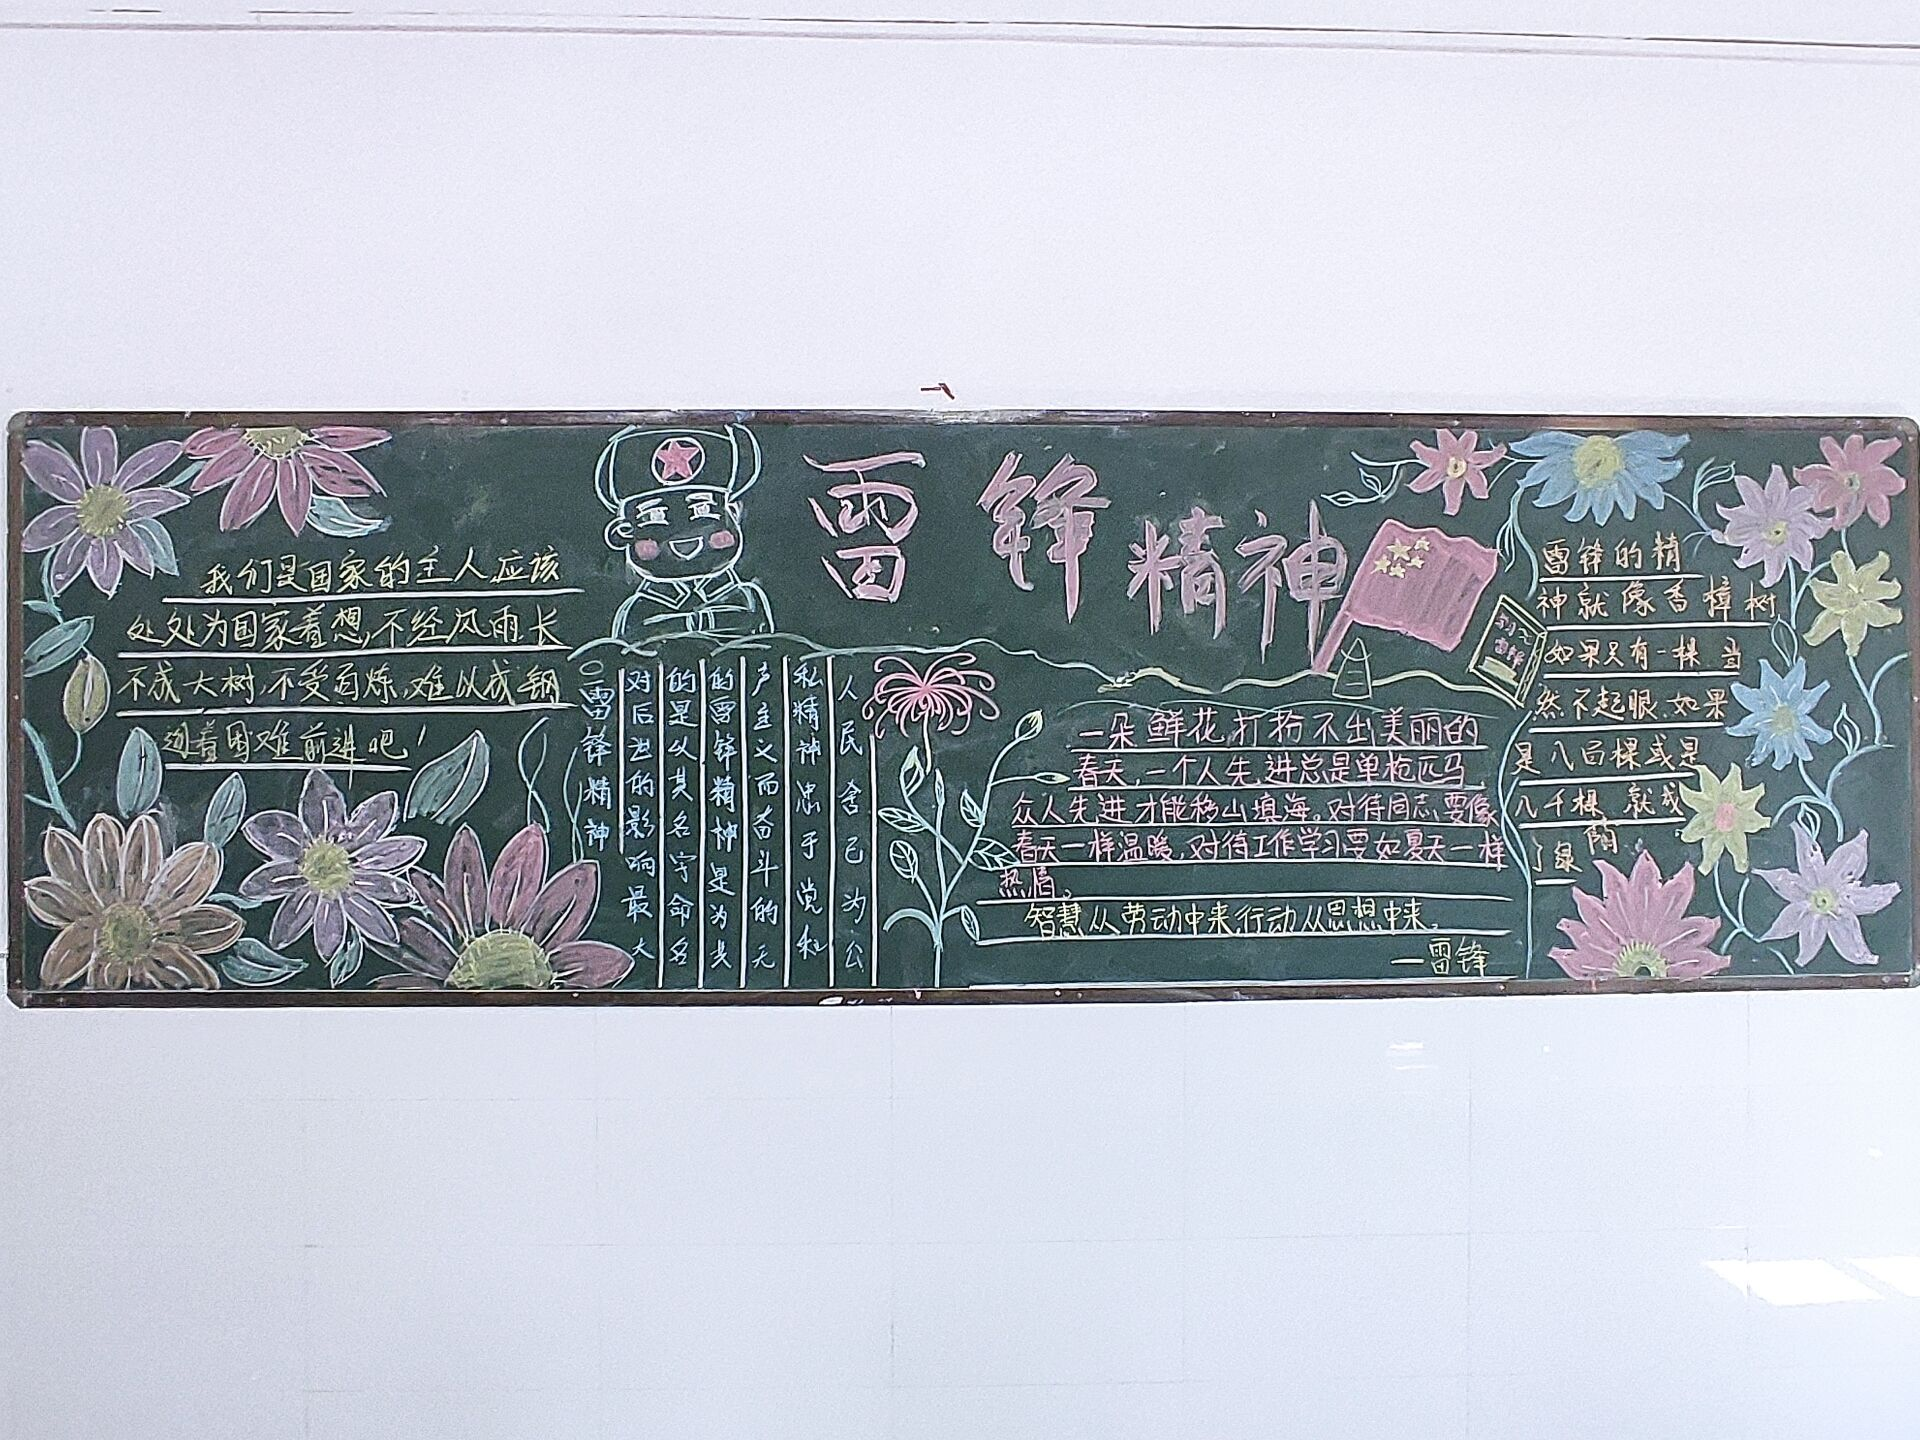 雷锋精神
我们是国家的主人,应该
处处为国家着想,不经风雨,长
不成大树,不受百炼,难以成钢
迎着困难前进吧!
雷锋精神
对后世的影响最大
的是以其名字命名
的雷锋精神是为共
产主义而奋斗的无
私精神忠于党和
人民舍己为公
雷锋
一朵鲜花打扮不出美丽的
春天,一个人先进总是单枪匹马,
众人先进才能移山填海。对待同志要像
春天一样温暖,对待工作学习要如夏天一样
热情。
智慧从劳动中来,行动从思想中来。
一雷锋
雷锋的精
神就像香樟树,
如果只有一棵当
然不起眼.如果
是八百棵或是
八千棵 就成
了绿 荫